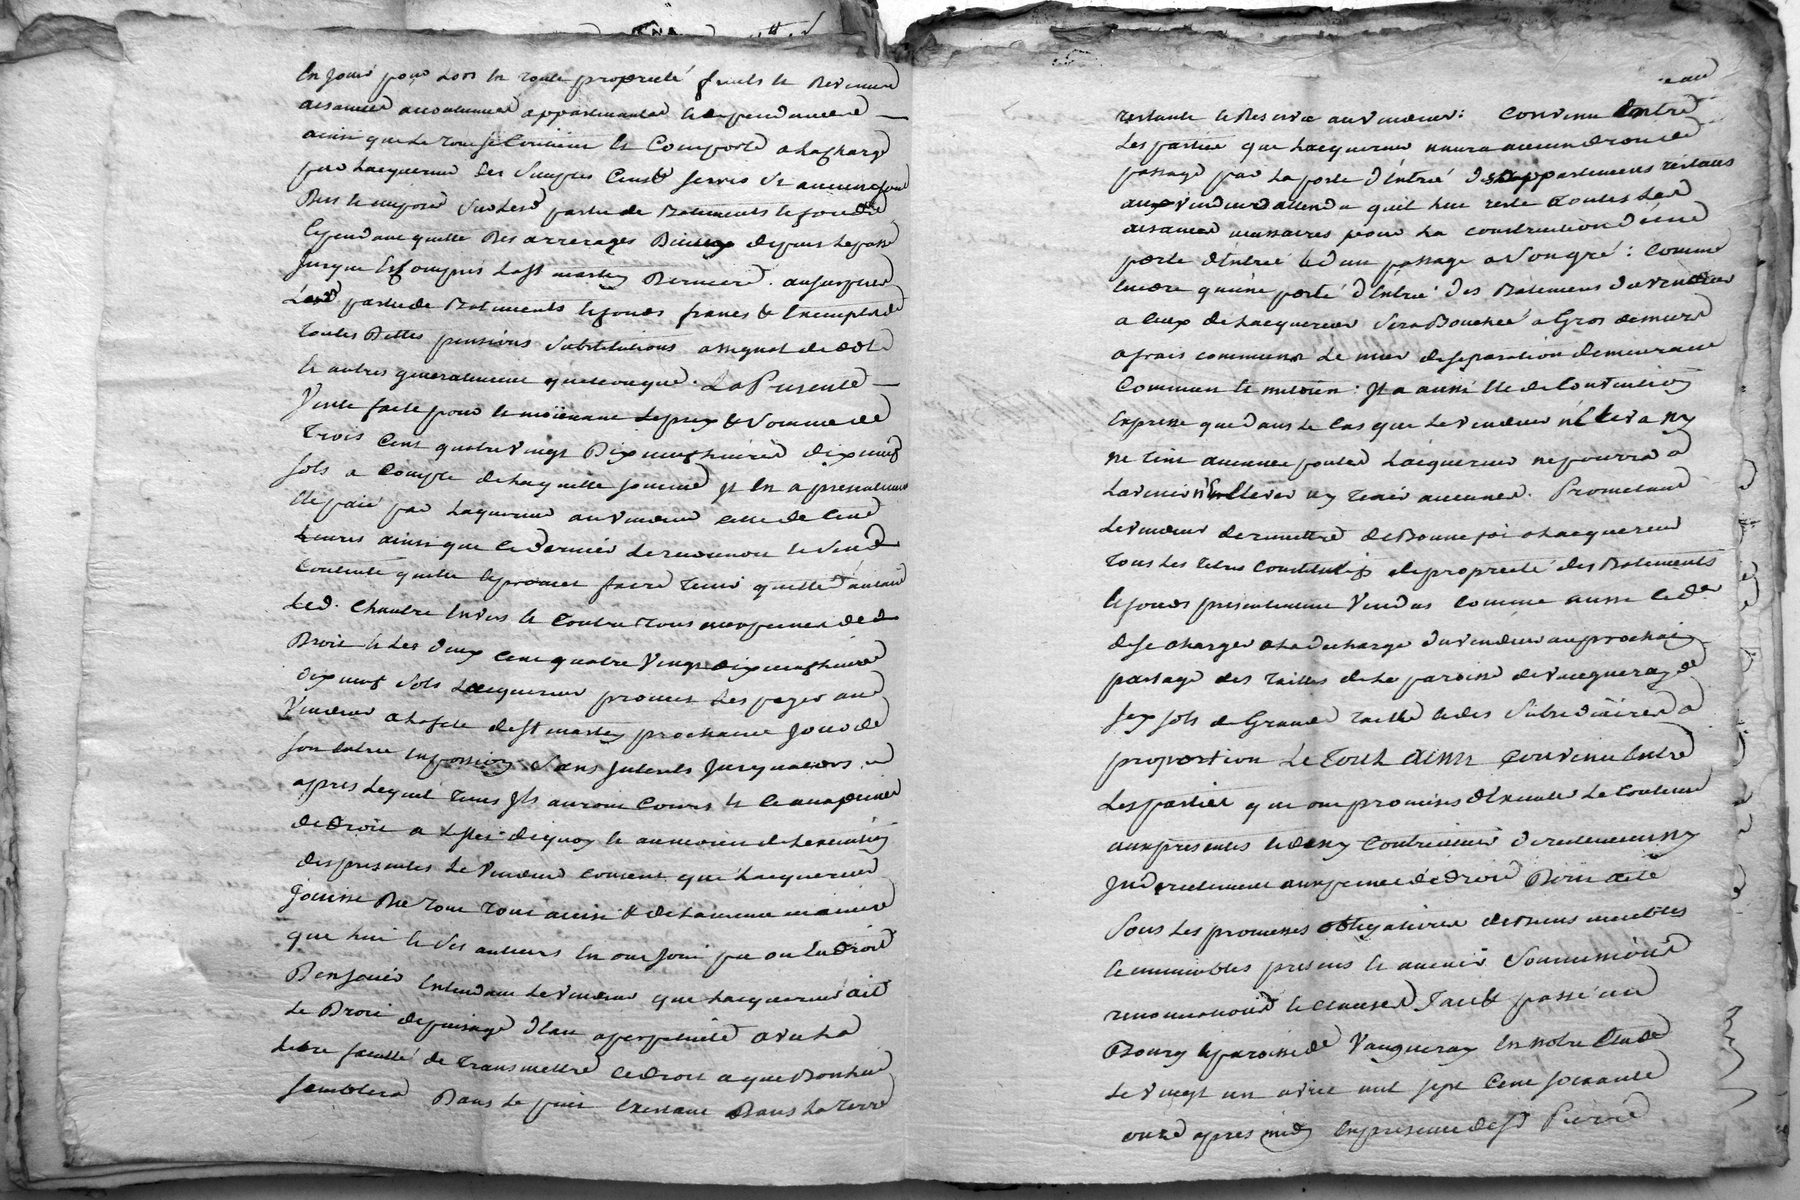 En Jouir pour Lors En toute proprieté fruits Et Revenus
aisances accoutumés appartenantes Et dependances
ainsi que Le tout Se Contient Et Comporte a La Charge
par Lacquereur des Simples Cens & servis Si aucuns sont
Dus Et imposés Sur Lesd. partie de Batiments Et fonds
Cependant quitte Des arrerages Diceux depuis Le passé
Jusques Et Compris La St martin Derniere. au surplus
Lesd. partie de Batiments Et fonds francs & Exempts de
toutes Dettes pensions Substitutions assignat de dot
Et autres generalement quelconques. La Presente
Vente faite pour Et moienant Le prix & Somme de
trois Cent quatre Vingt Dix neuf Livres dix neuf
sols a Compte de Laquelle somme Il En a presentement
Eté paié par Laquereur au Vendeur celle de Cent
Livres ainsi que Ce Dernier Le reconnoit Et S'en
Contente quitte Et promet faire tenir quitte
Led. Envers Et Contre tous aux peines de
Droit Et Les deux Cent quatre Vingt dix neuf Livres
dix neuf Sols Lacquereur promet Les payer au
Vendeur a La fete de St martin prochaine Jour de
son entrée En possession Sans Interets Jusqu'alors
apres Lequel tems Ils auront Cours Et Ce aux peines
de droit a de quoy Et au moien de L'execution
des presentes Le Vendeur Consent que Lacquereur
Jouisse Du tout tout ainsi & de La meme maniere
que Lui Et Ses auteurs En ont Joui pu ou du droit
D'en Jouir Entendant Le Vendeur que Lacquereur ait
Le Droit de puisage d'Eau a perpetuité avec La
Libre faculté de transmettre Ce droit a que Bon Lui
semblera Dans Le puit Existant Dans La terre
restante Et Reservée au Vendeur: Convenu Entre
Les parties que Lacquereur n'aura aucun droit de
passage par La porte d'Entrée des appartements restants
aux Vendeur attendu qu'il Lui reste toutes Les
aisances necessaires pour La construction d'une
porte d'Entrée Et d'un passage a Son gré: Comme
Encore qu'une porte d'Entrée des Batiments du Vendeur
a Ceux de Lacquereur Sera Bouchée a Gros de mure
a frais communs Le mur de separation demeurant
Commun Et mitoien: Il a aussi Eté de Convention
Expresse que dans Le Cas que Le Vendeur n'Eleva ny
ne tint aucunes poules Lacquereur ne pourra a
L'avenir n'Elever ny tenir aucunes. Promettant
Le Vendeur de remettre de Bonne foi a Lacquereur
tous Les titres Constitutifs de proprieté des Batiments
Et fonds presentement Vendus Comme aussi Ce der
de Se charger a La decharge du Vendeur au prochain
partage des tailles de La paroisse de Vaugneray de
six sols de Grande taille Et des Subsidiaires a
proportion Le tout ainsi Convenu Entre
Les parties qui ont promises d'Executer Le Contenu
aux presentes Et de ny Contrevenir directement ny
Indirectement aux peines de droit
Sous Les promesses obligations de Biens meubles
Et immeubles presens Et avenir Soumissions
renonciations Et clauses Fait & passé au
Bourg Et paroisse de Vaugneray En notre Etude
Le Vingt un avril mil sept Cent soixante
onze apres midy En presence de Sr Pierre